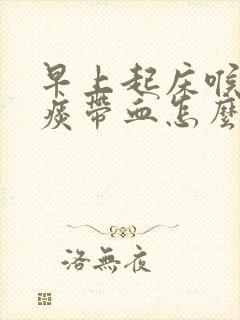 早上起床喉
痰帶血怎麼
洛無夜